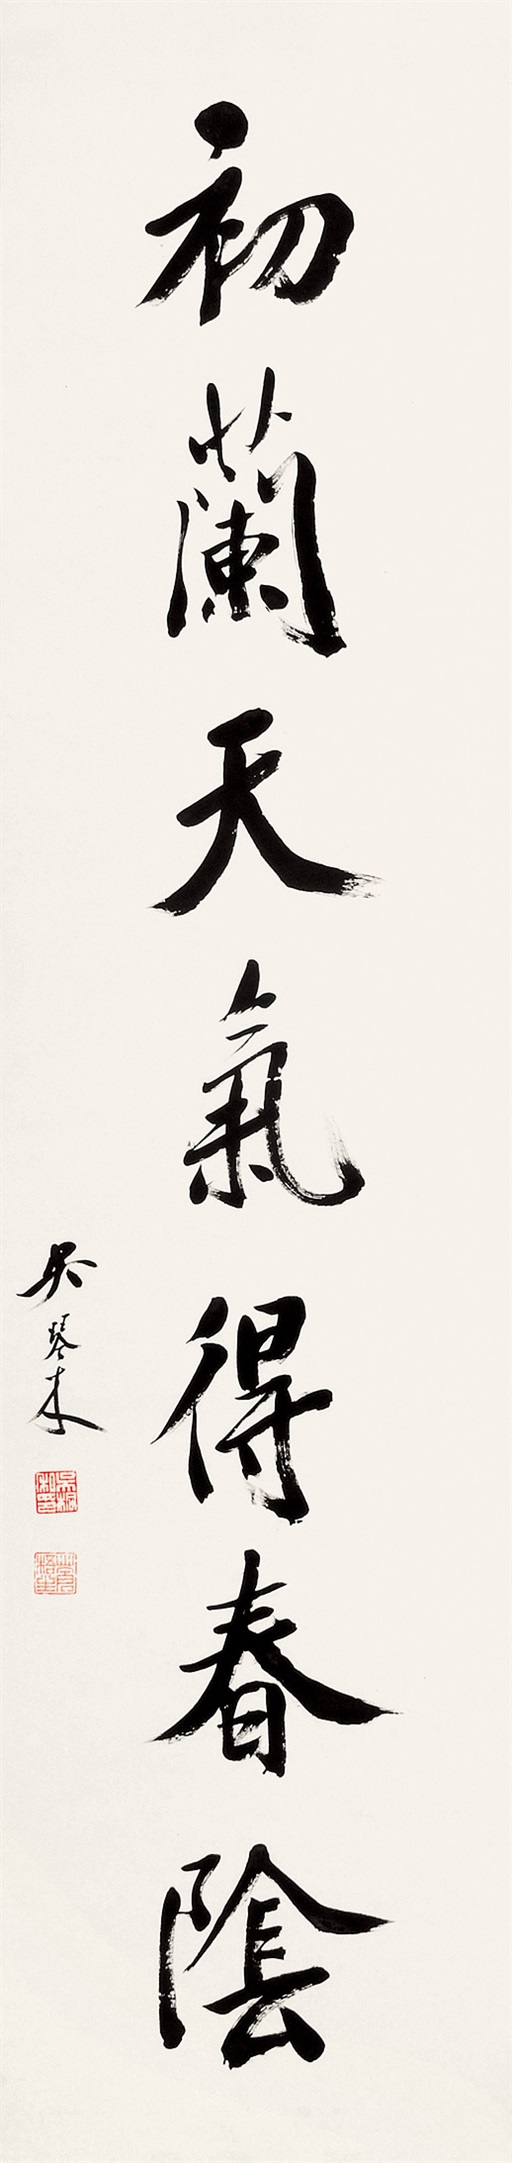 初蘭天氣得春陰
吳琴木